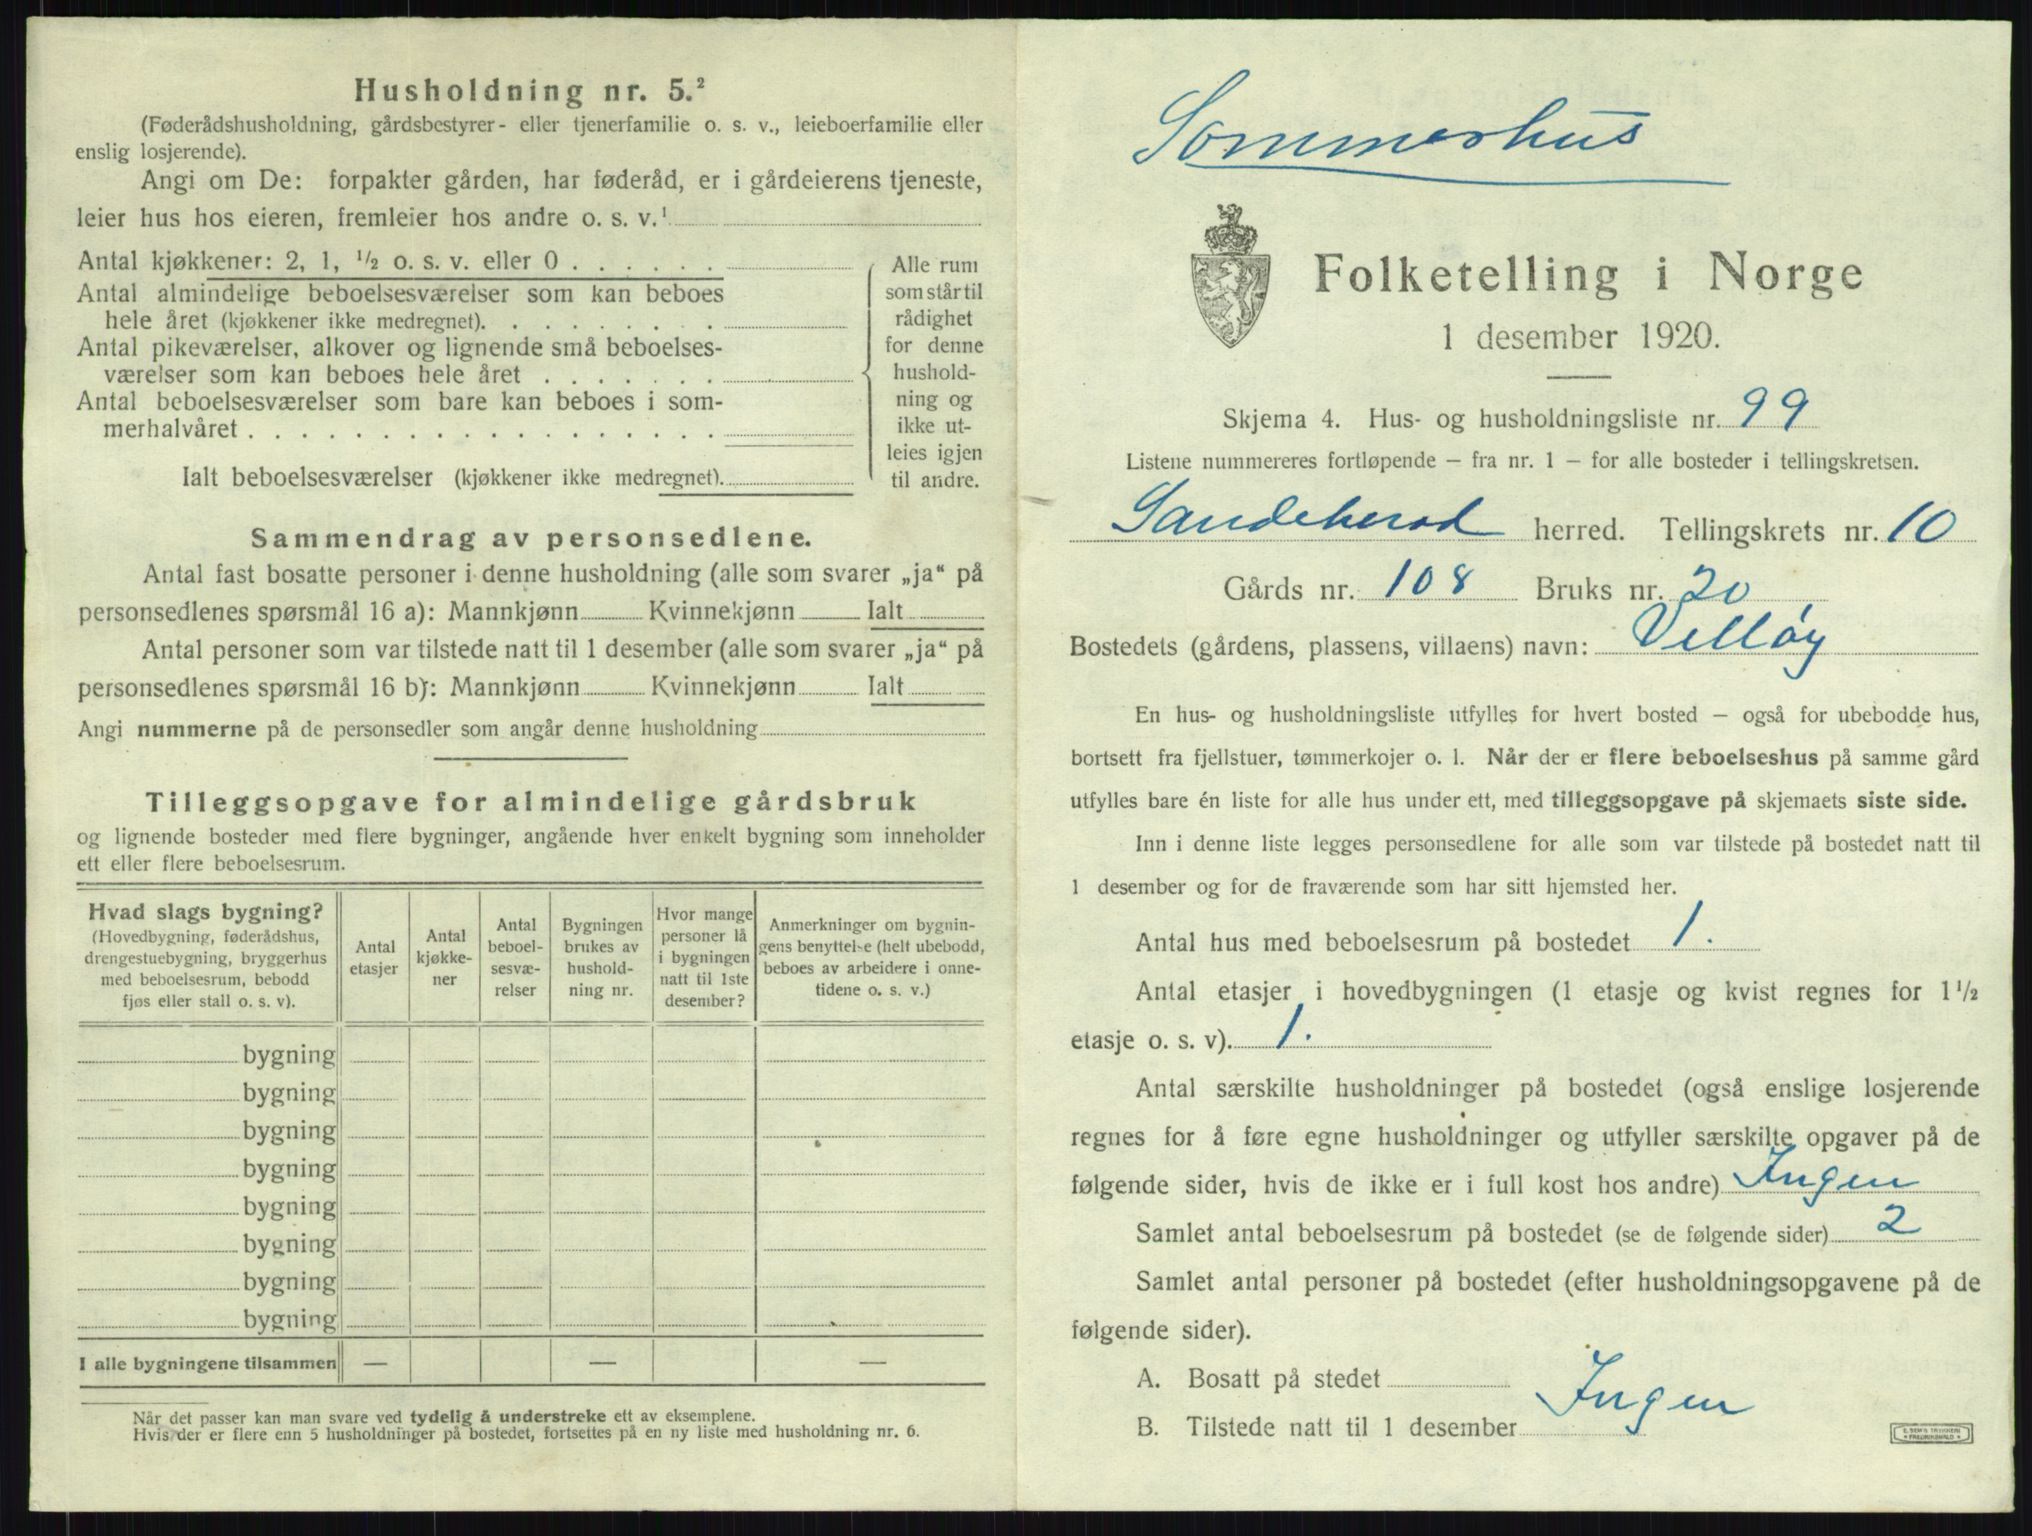 Husholdning nr. 5.²
(Føderådshusholdning, gårdsbestyrer- eller tjenerfamilie o. s. v., leieboerfamilie eller
enslig losjerende).
Angi om De: forpakter gården, har føderåd, er i gårdeierens tjeneste,
leier hus hos eieren, fremleier hos andre o. s. v.¹
Antal kjøkkener: 2, 1, ½ o. s. v. eller 0 . . . . . .
Antal almindelige beboelsesværelser som kan beboes
hele året (kjøkkener ikke medregnet). . . . . . . . .
Antal pikeværelser, alkover og lignende små beboelses-
værelser som kan beboes hele året . . . . . . .
Antal beboelsesværelser som bare kan beboes i som-
merhalvåret . . . . . . . . . . . . . . . . . .
Ialt beboelsesværelser (kjøkkener ikke medregnet).
Alle rum
som står til
rådighet
for denne
hushold-
ning og
ikke ut-
leies igjen
til andre.
Sammendrag av personsedlene.
Antal fast bosatte personer i denne husholdning (alle som svarer „ja“ på
personsedlenes spørsmål 16 a): Mannkjønn Kvinnekjønn Ialt
Antal personer som var tilstede natt til 1 desember (alle som svarer „ja“ på
personsedlenes spørsmål 16 b): Mannkjønn Kvinnekjønn Ialt
Angi nummerne på de personsedler som angår denne husholdning
Tilleggsopgave for almindelige gårdsbruk
og lignende bosteder med flere bygninger, angående hver enkelt bygning som inneholder
ett eller flere beboelsesrum.
Hvad slags bygning?
(Hovedbygning, føderådshus,
drengestuebygning, bryggerhus
med beboelsesrum, bebodd
fjøs eller stall o. s. v).
Antal
etasjer
Antal
kjøkke-
ner
Antal
beboel-
sesvæ-
relser
Bygningen
brukes av
hushold-
ning nr.
Hvor mange
personer lå
i bygningen
natt til 1ste
desember?
Anmerkninger om bygnin-
gens benyttelse (helt ubebodd,
beboes av arbeidere i onne-
tidene o. s. v.)
bygning
bygning
bygning
bygning
bygning
bygning
bygning
bygning
I alle bygningene tilsammen — — —
Når det passer kan man svare ved tydelig å understreke ett av eksemplene.
Hvis der er flere enn 5 husholdninger på bostedet, fortsettes på en ny liste med husholdning nr. 6.
Sommerhus
Folketelling i Norge
1 desember 1920.
Skjema 4. Hus- og husholdningsliste nr. 99
Listene nummereres fortløpende – fra nr. 1 – for alle bosteder i tellingskretsen.
Sandeherad herred. Tellingskrets nr. 10
Gårds nr. 108 Bruks nr. 20
Bostedets (gårdens, plassens, villaens) navn: Velløy
En hus- og husholdningsliste utfylles for hvert bosted – også for ubebodde hus,
bortsett fra fjellstuer, tømmerkojer o. l. Når der er flere beboelseshus på samme gård
utfylles bare én liste for alle hus under ett, med tilleggsopgave på skjemaets siste side.
Inn i denne liste legges personsedlene for alle som var tilstede på bostedet natt til
1 desember og for de fraværende som har sitt hjemsted her.
Antal hus med beboelsesrum på bostedet 1.
Antal etasjer i hovedbygningen (1 etasje og kvist regnes for 1½
etasje o. s. v). 1.
Antal særskilte husholdninger på bostedet (også enslige losjerende
regnes for å føre egne husholdninger og utfyller særskilte opgaver på de
følgende sider, hvis de ikke er i full kost hos andre) Ingen
Samlet antal beboelsesrum på bostedet (se de følgende sider) 2
Samlet antal personer på bostedet (efter husholdningsopgavene på de
følgende sider).
A. Bosatt på stedet
Ingen
B. Tilstede natt til 1 desember